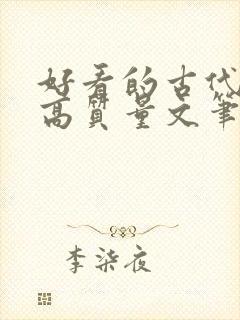 好看的古代
高质量文笔
李柒夜